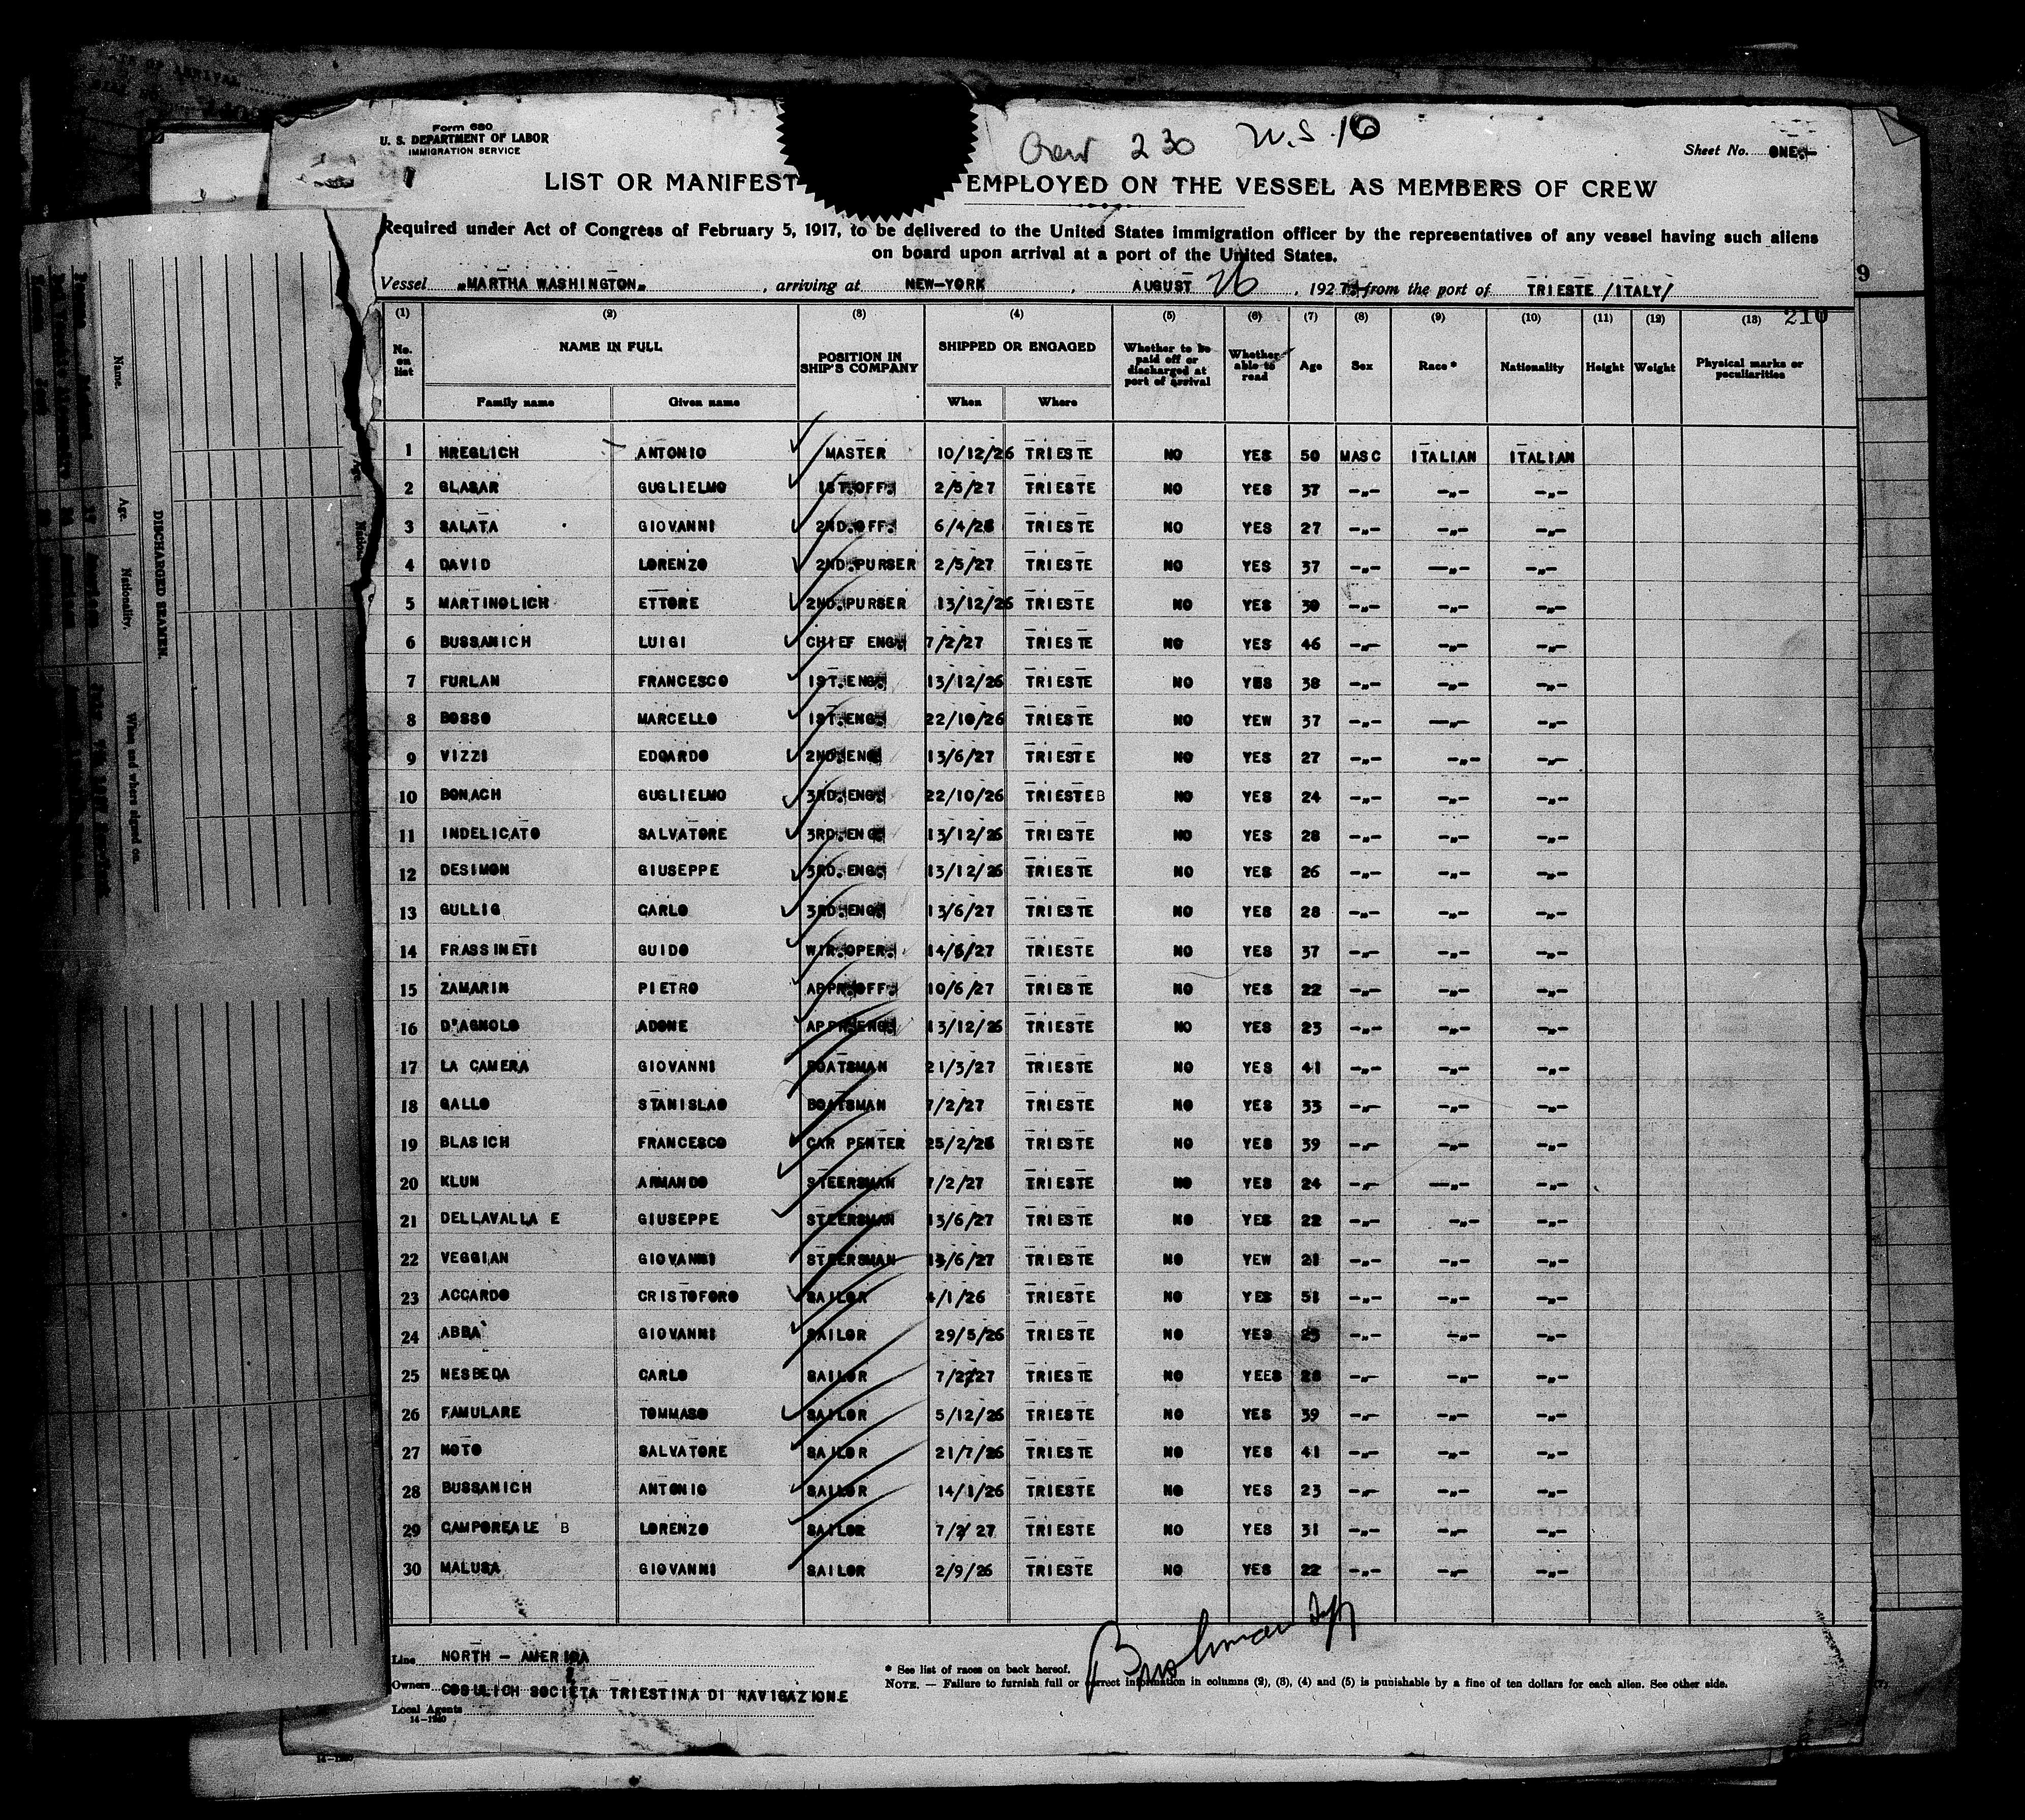 Form 680
U. S. DEPARTMENT OF LABOR
IMMIGRATION SERVICE
Crew 230 W.S. 10
Sheet No. ONE.-
LIST OR MANIFEST EMPLOYED ON THE VESSEL AS MEMBERS OF CREW
Required under Act of Congress of February 5, 1917, to be delivered to the United States immigration officer by the representatives of any vessel having such aliens
on board upon arrival at a port of the United States.
Vessel „MARTHA WASHINGTON„ , arriving at NEW-YORK , AUGUST 26 , 1927 from the port of TRIESTE /ITALY/
9
210
(1) (2) (3) (4) (5) (6) (7) (8) (9) (10) (11) (12) (13)
No. on list NAME IN FULL POSITION IN SHIP'S COMPANY SHIPPED OR ENGAGED Whether to be paid off or discharged at port of arrival Whether able to read Age Sex Race * Nationality Height Weight Physical marks or peculiarities
Family name Given name When Where
1 HREGLICH ANTONIO MASTER 10/12/26 TRIESTE NO YES 50 MASC ITALIAN ITALIAN
2 GLABAR GUGLIELMO 1ST.OFF. 2/5/27 TRIESTE NO YES 37 -„- -„- -„-
3 SALATA GIOVANNI 2ND.OFF. 6/4/26 TRIESTE NO YES 27 -„- -„- -„-
4 DAVID LORENZO 2ND.PURSER 2/5/27 TRIESTE NO YES 37 -„- -„- -„-
5 MARTINOLICH ETTORE 2ND.PURSER 13/12/26 TRIESTE NO YES 30 -„- -„- -„-
6 BUSSANICH LUIGI CHIEF ENG. 7/2/27 TRIESTE NO YES 46 -„- -„- -„-
7 FURLAN FRANCESCO 1ST.ENG. 13/12/26 TRIESTE NO YES 38 -„- -„- -„-
8 BOSSO MARCELLO 1ST.ENG. 22/10/26 TRIESTE NO YEW 37 -„- -„- -„-
9 VIZZI EDOARDO 2ND.ENG 13/6/27 TRIESTE NO YES 27 -„- -„- -„-
10 BONACH GUGLIELMO 3RD.ENG. 22/10/26 TRIESTEB NO YES 24 -„- -„- -„-
11 INDELICATO SALVATORE 3RD.ENG. 13/12/26 TRIESTE NO YES 28 -„- -„- -„-
12 DESIMON GIUSEPPE 3RD.ENG. 13/12/26 TRIESTE NO YES 26 -„- -„- -„-
13 GULLIG CARLO 3RD.ENG. 13/6/27 TRIESTE NO YES 28 -„- -„- -„-
14 FRASSINETI GUIDO WIR.OPER. 14/6/27 TRIESTE NO YES 37 -„- -„- -„-
15 ZAMARIN PIETRO APPR.OFF. 10/6/27 TRIESTE NO YES 22 -„- -„- -„-
16 D'AGNOLO ADONE APPR.ENG. 13/12/26 TRIESTE NO YES 23 -„- -„- -„-
17 LA CAMERA GIOVANNI BOATSMAN 21/3/27 TRIESTE NO YES 41 -„- -„- -„-
18 GALLO STANISLAO BOATSMAN 7/2/27 TRIESTE NO YES 33 -„- -„- -„-
19 BLASICH FRANCESCO CAR PENTER 25/2/26 TRIESTE NO YES 39 -„- -„- -„-
20 KLUN ARMANDO STEERSMAN 7/2/27 TRIESTE NO YES 24 -„- -„- -„-
21 DELLAVALLA E GIUSEPPE STEERSMAN 13/6/27 TRIESTE NO YES 22 -„- -„- -„-
22 VEGGIAN GIOVANNI STEERSMAN 13/6/27 TRIESTE NO YEW 21 -„- -„- -„-
23 ACCARDO CRISTOFORO SAILOR 4/1/26 TRIESTE NO YES 51 -„- -„- -„-
24 ABBA' GIOVANNI SAILOR 29/5/26 TRIESTE NO YES 25 -„- -„- -„-
25 NESBEDA CARLO SAILOR 7/2/27 TRIESTE NO YEES 26 -„- -„- -„-
26 FAMULARE TOMMASO SAILOR 5/12/26 TRIESTE NO YES 39 -„- -„- -„-
27 NOTO SALVATORE SAILOR 21/7/26 TRIESTE NO YES 41 -„- -„- -„-
28 BUSSANICH ANTONIO SAILOR 14/1/26 TRIESTE NO YES 23 -„- -„- -„-
29 CAMPOREALE B LORENZO SAILOR 7/2/ 27 TRIESTE NO YES 31 -„- -„- -„-
30 MALUSA GIOVANNI SAILOR 2/9/26 TRIESTE NO YES 22 -„- -„- -„-
Line NORTH - AMERICA
Owners COSULICH SOCIETA TRIESTINA DI NAVIGAZIONE
Local Agents
14-1240
* See list of races on back hereof.
NOTE. — Failure to furnish full or correct information in columns (2), (3), (4) and (5) is punishable by a fine of ten dollars for each alien. See other side.
Name.
Age.
Nationality.
When and where signed on.
DISCHARGED SEAMEN.